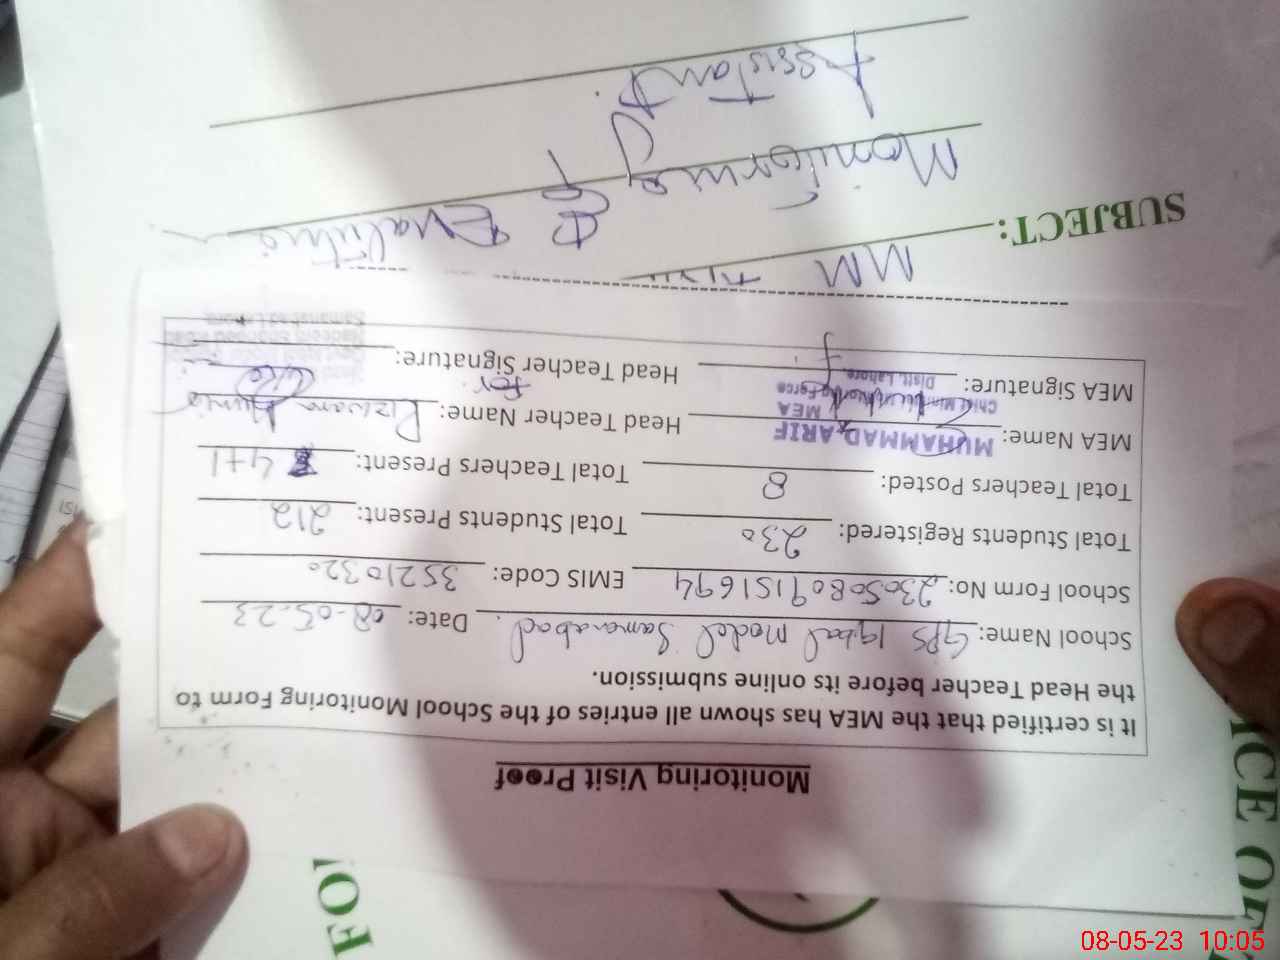 Monitoring Visit Proof
It is certified that the MEA has shown all entries of the School Monitoring Form to
the Head Teacher before its online submission.
School Name: GPS Iqbal Model Samanabad. Date: 08-05-23
School Form No: 2305080915 1694 EMIS Code: 35210320
Total Students Registered: 230 Total Students Present: 212
Total Teachers Posted: 8 Total Teachers Present: 4+1
MEA Name: MUHAMMAD ARIF Head Teacher Name: Rizwana
MEA
Chief Minister's Monitoring Force
Distt. Lahore.
MEA Signature: Head Teacher Signature: for
Samanabad Lahore
SUBJECT:
MM
& Evaluation
Monitoring
Assistant.
FOR
ICE OF
08-05-23 10:05